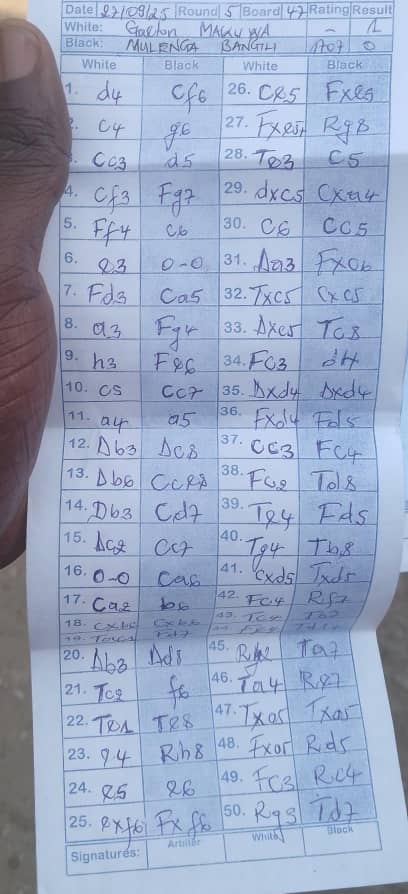 Date 27/09/25 Round 5 Board 47 Rating Result
White: Gaeton MAKUWA - 1
Black: MULENGA BANGILI 1707 0
White Black White Black
1. d4 Cf6 26. Ce5 Fxe5
c4 g6 27. Fxe5+ Rg8
Cc3 d5 28. Te3 c5
4. Cf3 Fg7 29. dxc5 Cxa4
5. Ff4 c6 30. c6 Cc5
6. e3 0-0 31. Da3 Fxc6
7. Fd3 Ca5 32. Txc5 Cxc5
8. a3 Fg4 33. Dxc5 Tc8
9. h3 Fe6 34. Fc3 d4
10. c5 Cc7 35. Dxd4 Dxd4
11. a4 a5 36. Fxd4 Fd5
12. Db3 Dc8 37. Cc3 Fc4
13. Db6 Cce8 38. Fc2 Td8
14. Db3 Cd7 39. Te4 Fd5
15. Dc2 Cc7 40. Tg4 Tb8
16. 0-0 Ca6 41. Cxd5 Txd5
17. Ca2 b6 42. Fc4 Rf7
18. cxb6 Cxb6 43.
19. 44.
20. Db3 Dd8 45. Rh2 Ta7
21. Tc2 f6 46. Ta4 Re7
22. Te1 Te8 47. Txa5 Txa5
23. g4 Rh8 48. Rd5
24. e5 e6 49. Fc3 Rc4
25. exf6 Fxf6 50. Rg3 Td7
Signatures: Arbiter White Black